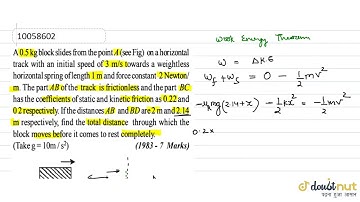 10058602
A 0.5 kg block slides from the point A (see Fig) on a horizontal
track with an initial speed of 3 m/s towards a weightless
horizontal spring of length 1 m and force constant 2 Newton/
m. The part AB of the track is frictionless and the part BC
has the coefficients of static and kinetic friction as 0.22 and
0.2 respectively. If the distances AB and BD are 2 m and 2.14
m respectively, find the total distance through which the
block moves before it comes to rest completely.
(Take g = 10m / s²) (1983 - 7 Marks)
Work Energy Theorem
W = ΔK.E
Wf + Ws = 0 - 1/2 mv²
-μk mg(2.14+x) - 1/2 kx² = -1/2 mv²
0.2 x
doubtnut